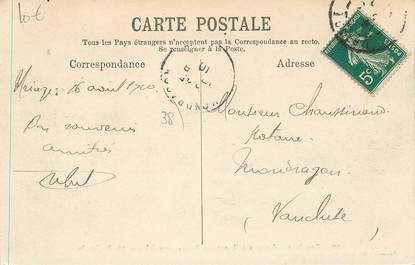 lot
CARTE POSTALE
Tous les Pays étrangers n'acceptent pas la Correspondance au recto.
Se renseigner à la Poste.
Correspondance
Adresse
6 avril 1910
souvenirs
amitiés
38
5c
MONDRAGON
Monsieur Chaussinand
Notaire
Mondragon
(Vaucluse)